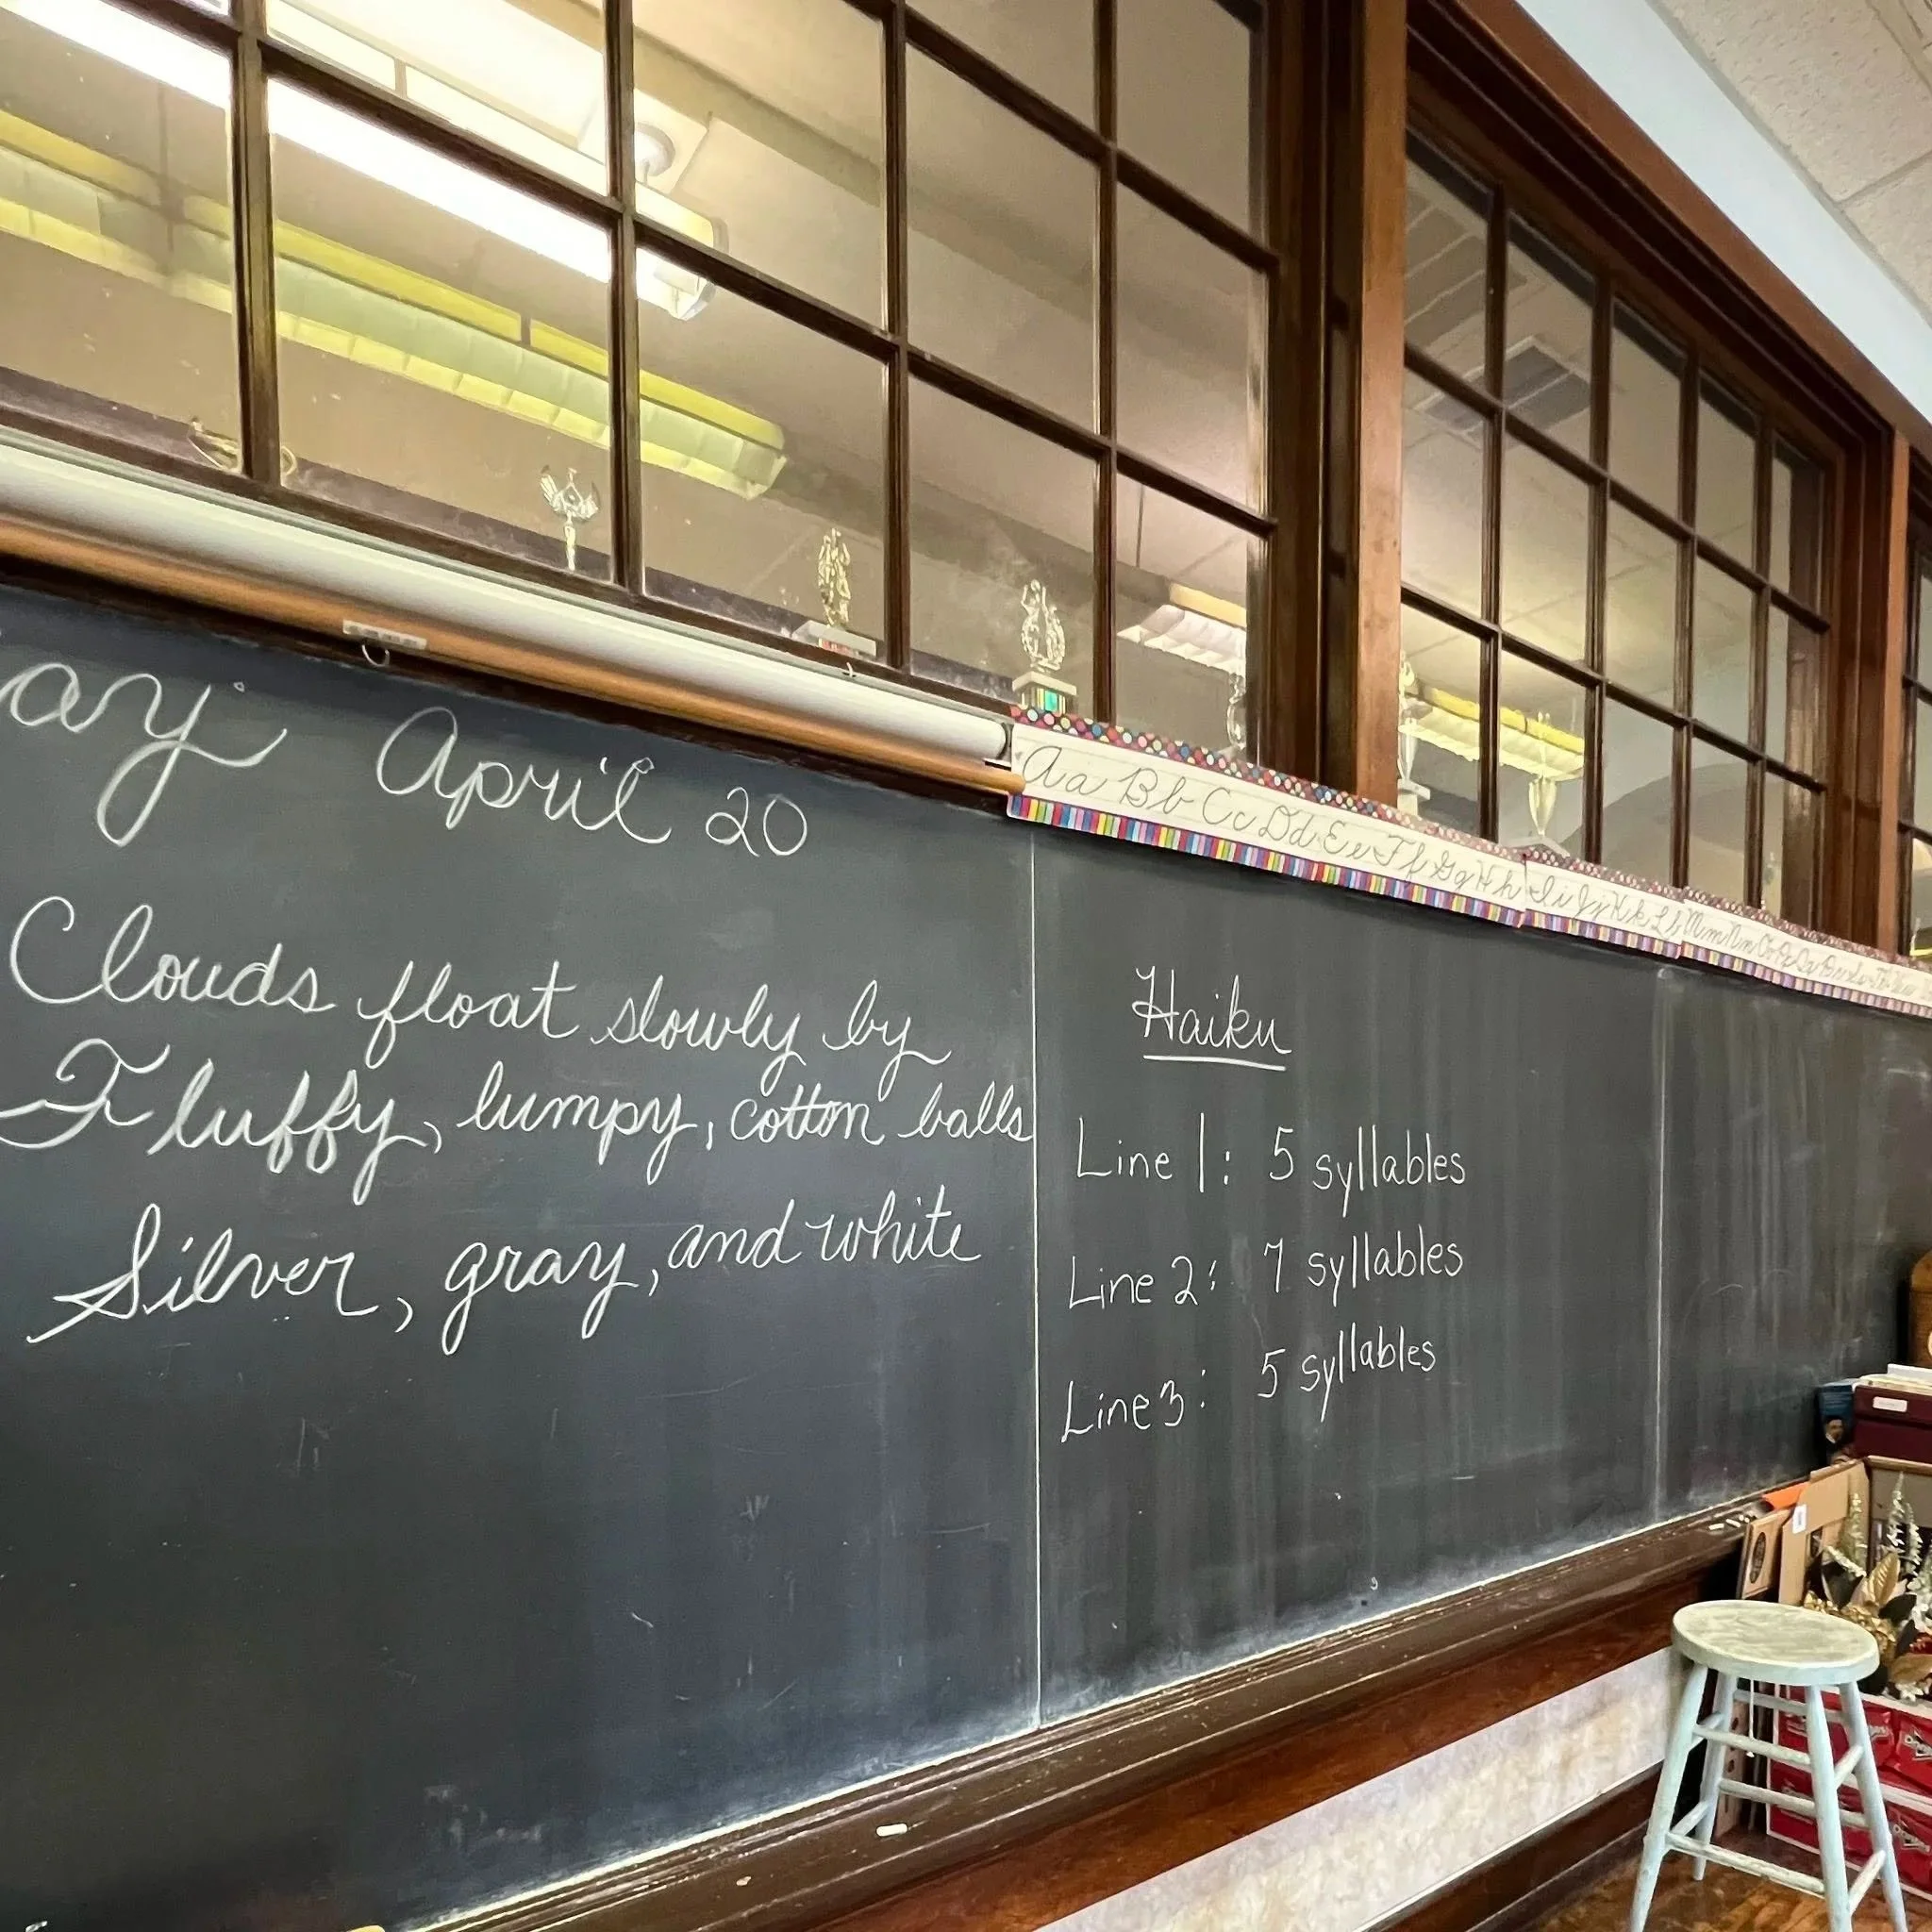 April 20
Clouds float slowly by
Fluffy, lumpy, cotton balls
Silver, gray, and white
Aa Bb Cc Dd Ee Ff Gg Hh Ii Jj Kk Ll Mm Nn Oo Pp
Haiku
Line 1: 5 syllables
Line 2: 7 syllables
Line 3: 5 syllables